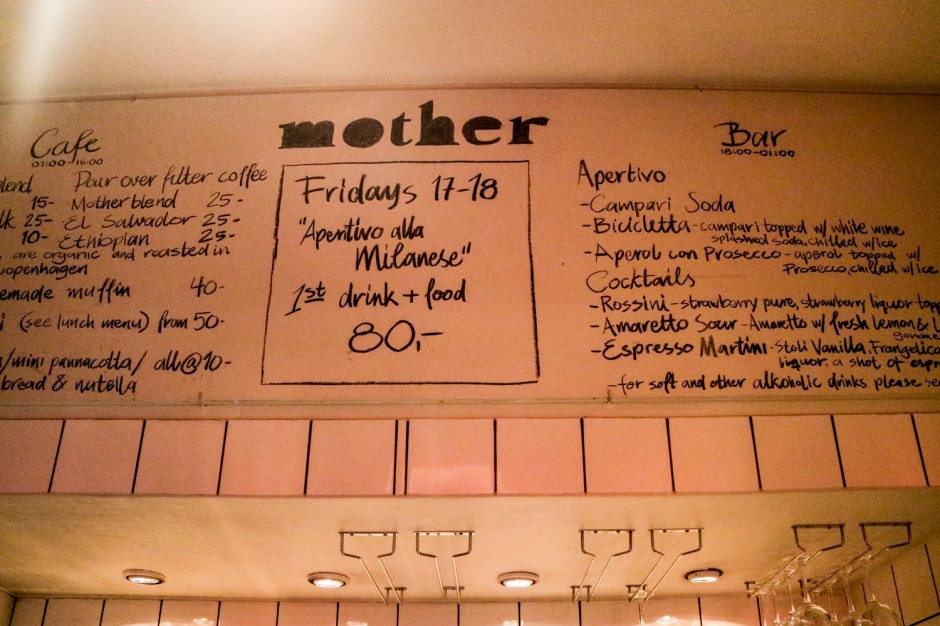 mother
Cafe
07:00-16:00
blend Pour over filter coffee
15- Motherblend 25-
25- El Salvador 25-
10- Ethiopian 25-
are organic and roasted in
copenhagen
muffin 40-
(see lunch menu) from 50-
/mini pannacotta/ all@10-
bread & nutella
Fridays 17-18
"Apertivo alla
Milanese"
1st drink + food
80,-
Bar
18:00-01:00
Apertivo
-Campari Soda
-Bicicletta-campari topped w/ white wine
splashed soda, chilled w/ice
-Aperol con Prosecco-aperol topped w/
Prosecco, chilled w/ice
Cocktails
-Rossini-strawberry pure, strawberry liquor
-Amaretto Sour-Amaretto w/ fresh lemon &
-Espresso Martini-Stoli Vanilla, Frangelico
liquor, a shot of
-for soft and other alkoholic drinks please